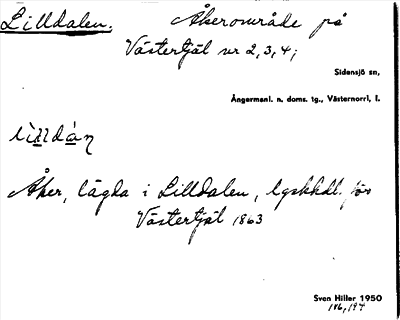 Lilldalen. Åkerområde på
Västertjäl nr 2, 3, 4;
Sidensjö sn,
Ångermanl. n. doms. tg., Västernorrl, l.
Åker, lägda i Lilldalen, lgskhdl. för
Västertjäl 1863
Sven Hiller 1950